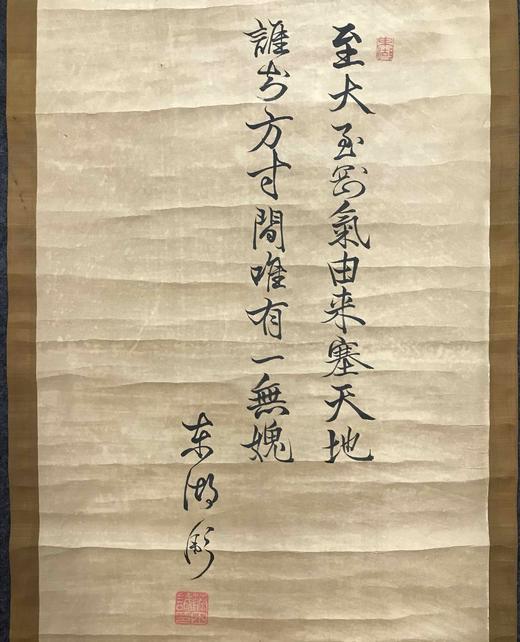 至大至剛氣由来塞天地
誰知方寸間唯有一無媿
東湖彪